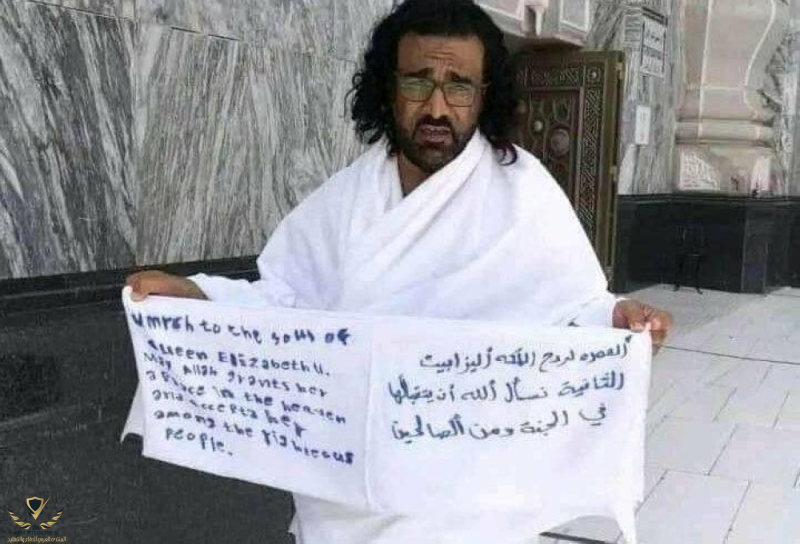 umrah to the soul of
Queen Elizabeth II.
May Allah grants her
a place in the heaven
and accepta her
among the righteous
people.
العمره لروح الملكه أليزابيت
الثانية نسأل الله أن يتقبلها
في الجنة ومن الصالحين